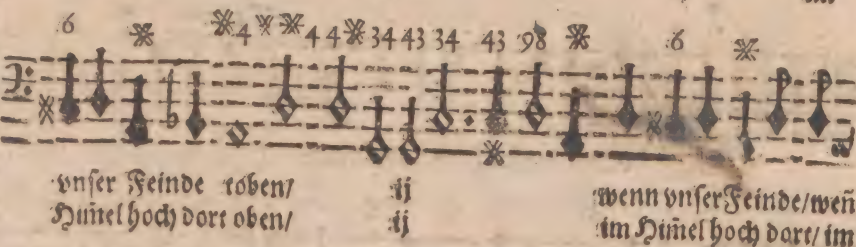 6 4 4 4 34 43 34 43 98 6
vnser Feinde toben/ ij wenn vnser Feinde/ weñ
Him̃el hoch dort oben/ ij im Him̃el hoch dort/ im